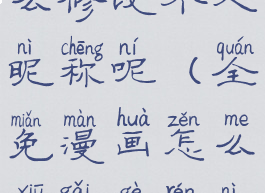 nì chēng ní quán
昵称呢（全
miǎn màn huà zěn me
免漫画怎么
xiū gǎi gè rén nì